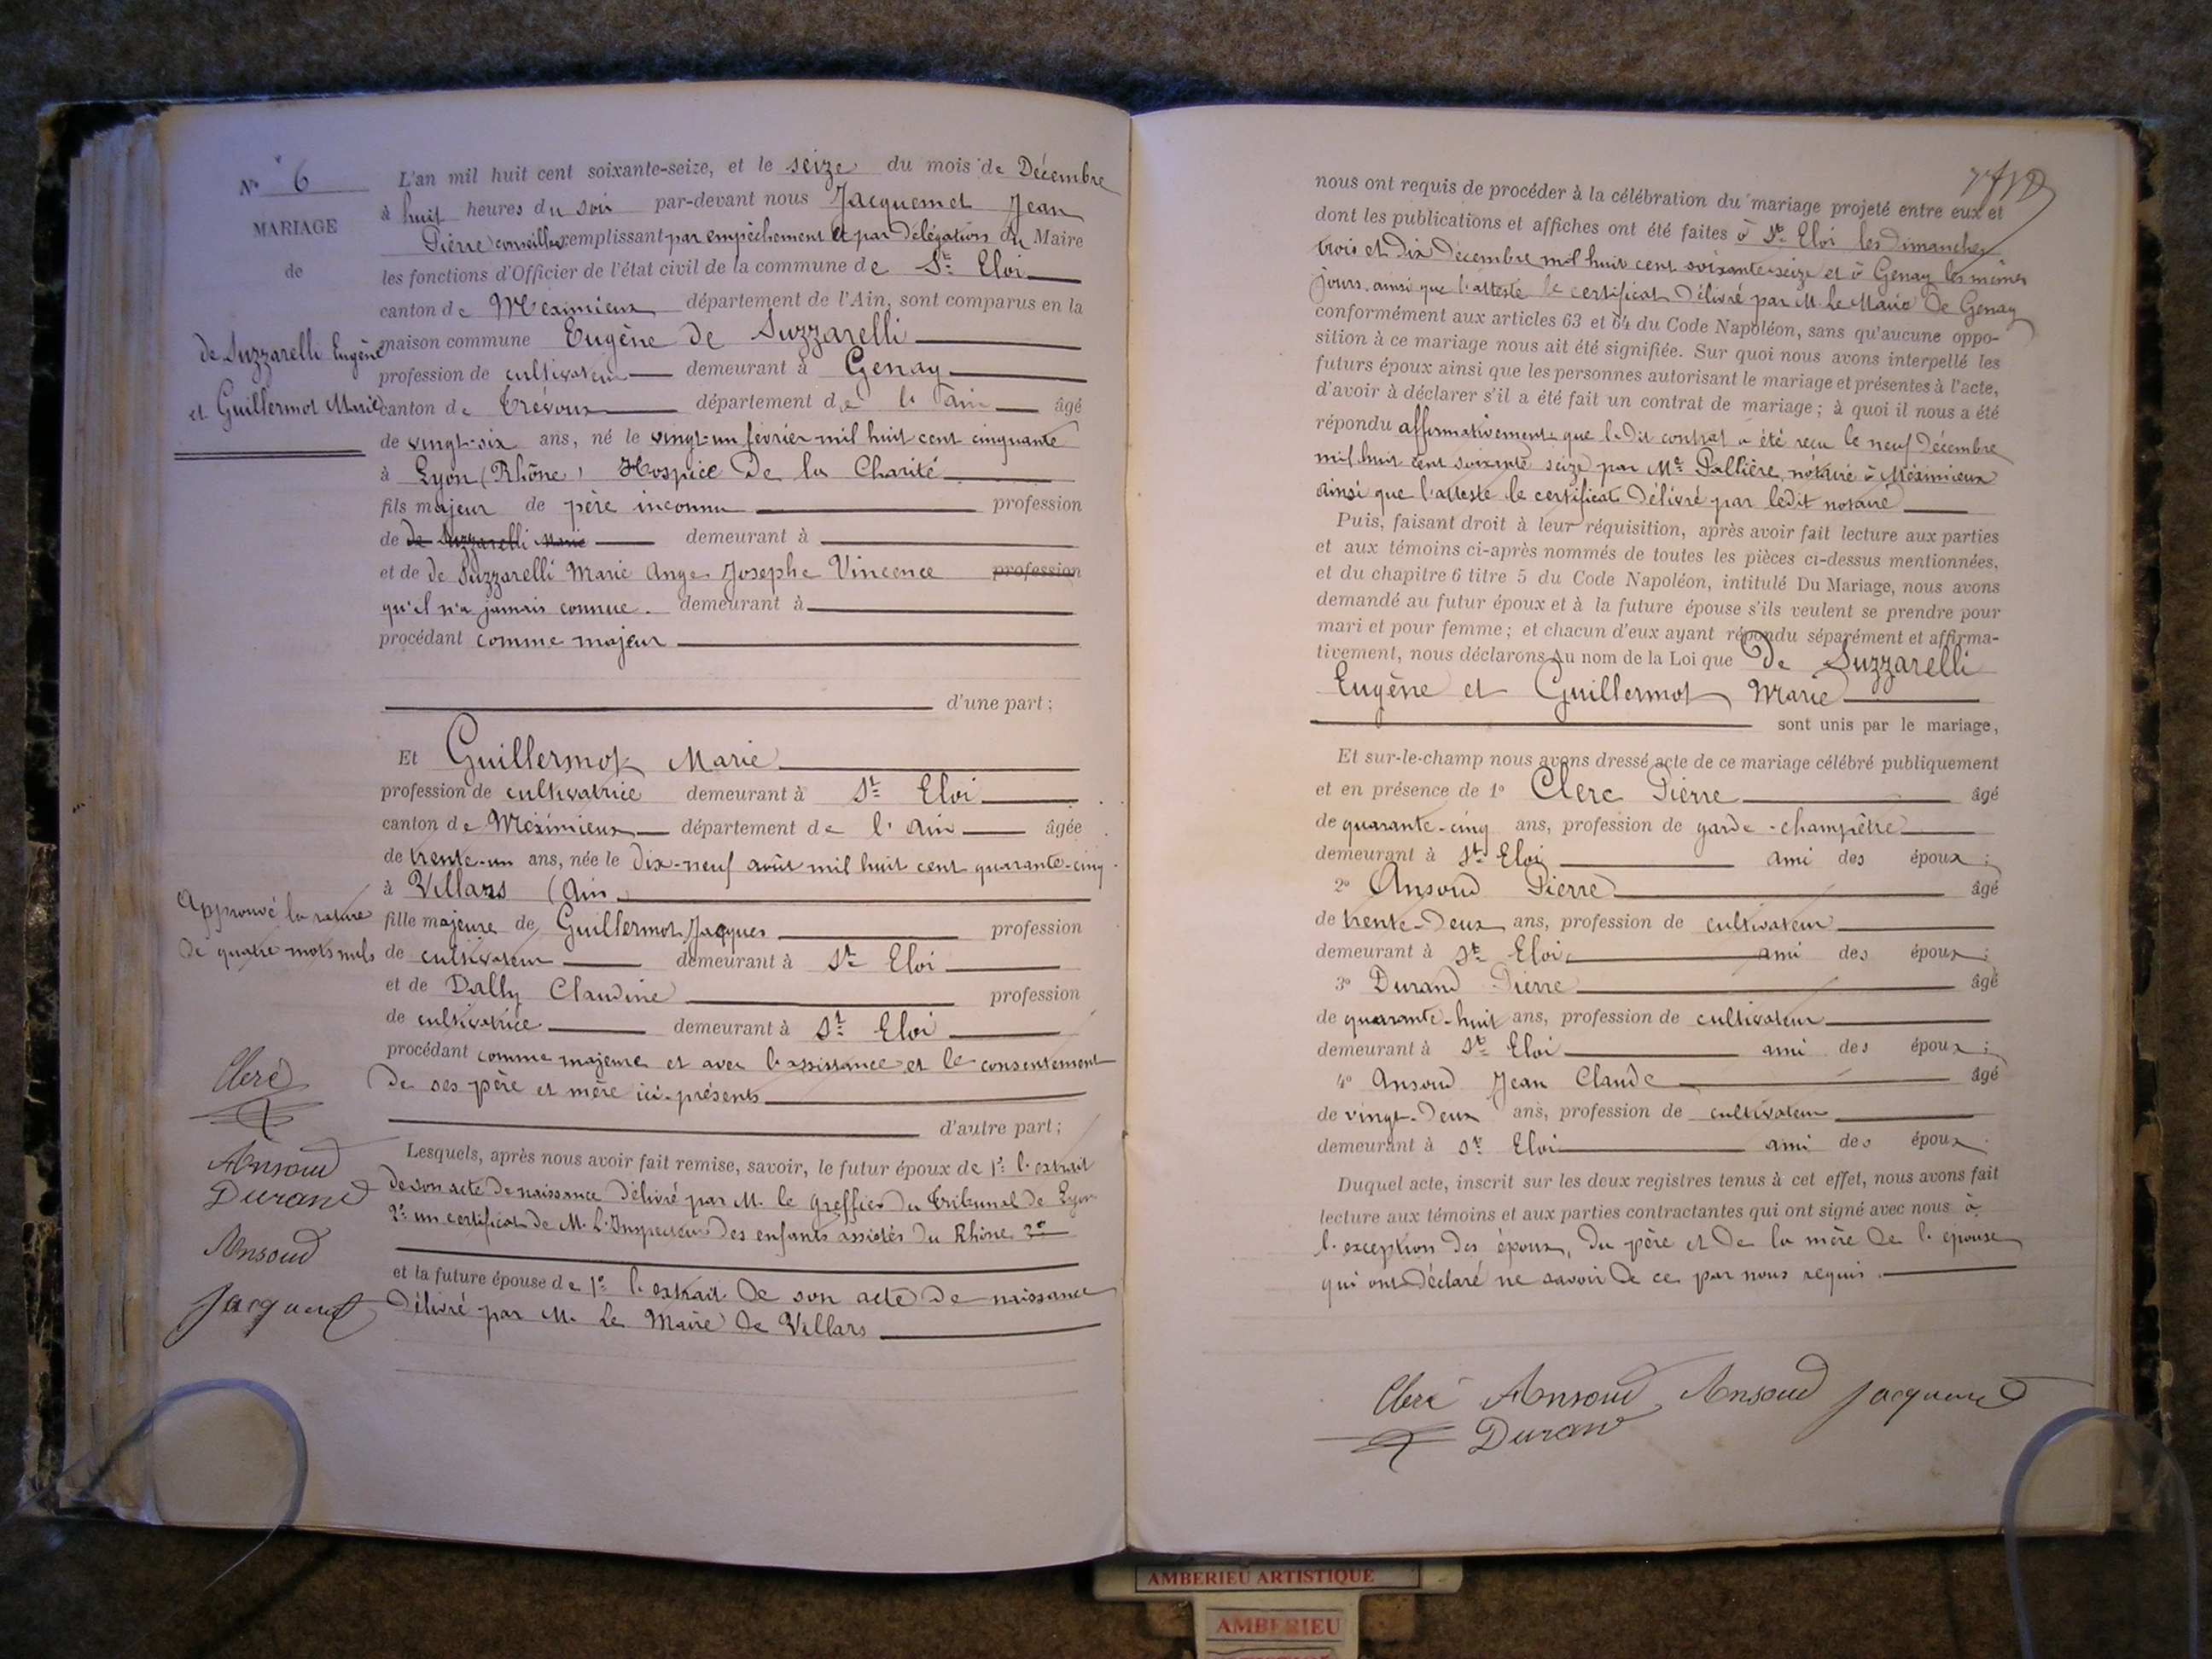 N° 6
MARIAGE
de
de Suzzarelli Eugène
et Guillermot Marie
L'an mil huit cent soixante-seize, et le seize du mois de Décembre
à huit heures du soir par-devant nous Jacquemet Jean
Pierre conseiller remplissant par empêchement et par délégation du Maire
les fonctions d'Officier de l'état civil de la commune de St Eloi
canton de Meximieux département de l'Ain, sont comparus en la
maison commune Eugène de Suzzarelli
profession de cultivateur demeurant à Genay
canton de Trévoux département de l'Ain âgé
de vingt-six ans, né le vingt-un février mil huit cent cinquante
à Lyon (Rhône) Hospice de la Charité
fils majeur de père inconnu profession
de de Suzzarelli Marie demeurant à
et de de Suzzarelli Marie Ange Josephe Vincence profession
qu'il n'a jamais connue. demeurant à
procédant comme majeur
d'une part ;
Et Guillermot Marie
profession de cultivatrice demeurant à St Eloi
canton de Méximieux département de l'Ain âgée
de trente-un ans, née le dix-neuf août mil huit cent quarante-cinq
à Villars (Ain
fille majeure de Guillermot Jacques profession
de cultivateur demeurant à St Eloi
et de Dally Claudine profession
de cultivatrice demeurant à St Eloi
procédant comme majeure et avec l'assistance et le consentement
de ses père et mère ici-présents
d'autre part ;
Approuvé la rature
de quatre mots nuls
Clerc
Ansoud
Durand
Ansoud
Jacquemet
Lesquels, après nous avoir fait remise, savoir, le futur époux de 1° l'extrait
de son acte de naissance délivré par M. le Greffier du Tribunal de Lyon
2° un certificat de M. l'Inspecteur des enfants assistés du Rhône
et la future épouse de 1° l'extrait de son acte de naissance
délivré par M. le Maire de Villars
nous ont requis de procéder à la célébration du mariage projeté entre eux et
dont les publications et affiches ont été faites à St Eloi les dimanches
trois et dix Décembre mil huit cent soixante-seize et à Genay les mêmes
jours ainsi que l'atteste le certificat délivré par M. le Maire de Genay
conformément aux articles 63 et 64 du Code Napoléon, sans qu'aucune oppo-
sition à ce mariage nous ait été signifiée. Sur quoi nous avons interpellé les
futurs époux ainsi que les personnes autorisant le mariage et présentes à l'acte,
d'avoir à déclarer s'il a été fait un contrat de mariage ; à quoi il nous a été
répondu affirmativement que le dit contrat a été reçu le neuf Décembre
mil huit cent soixante seize par Me Pallière, notaire à Méximieux
ainsi que l'atteste le certificat délivré par ledit notaire
Puis, faisant droit à leur réquisition, après avoir fait lecture aux parties
et aux témoins ci-après nommés de toutes les pièces ci-dessus mentionnées,
et du chapitre 6 titre 5 du Code Napoléon, intitulé Du Mariage, nous avons
demandé au futur époux et à la future épouse s'ils veulent se prendre pour
mari et pour femme ; et chacun d'eux ayant répondu séparément et affirma-
tivement, nous déclarons au nom de la Loi que De Suzzarelli
Eugène et Guillermot Marie
sont unis par le mariage,
Et sur-le-champ nous avons dressé acte de ce mariage célébré publiquement
et en présence de 1° Clerc Pierre âgé
de quarante-cinq ans, profession de garde-champêtre
demeurant à St Eloi ami des époux ;
2° Ansoud Pierre âgé
de trente-deux ans, profession de cultivateur
demeurant à St Eloi ami des époux ;
3° Durand Pierre âgé
de quarante-huit ans, profession de cultivateur
demeurant à St Eloi ami des époux ;
4° Ansoud Jean Claude âgé
de vingt-deux ans, profession de cultivateur
demeurant à St Eloi ami des époux
Duquel acte, inscrit sur les deux registres tenus à cet effet, nous avons fait
lecture aux témoins et aux parties contractantes qui ont signé avec nous à
l'exception des époux, du père et de la mère de l'épouse
qui ont déclaré ne savoir de ce par nous requis.
Clerc Ansoud Ansoud Jacquemet
Durand
AMBERIEU ARTISTIQUE
AMBERIEU